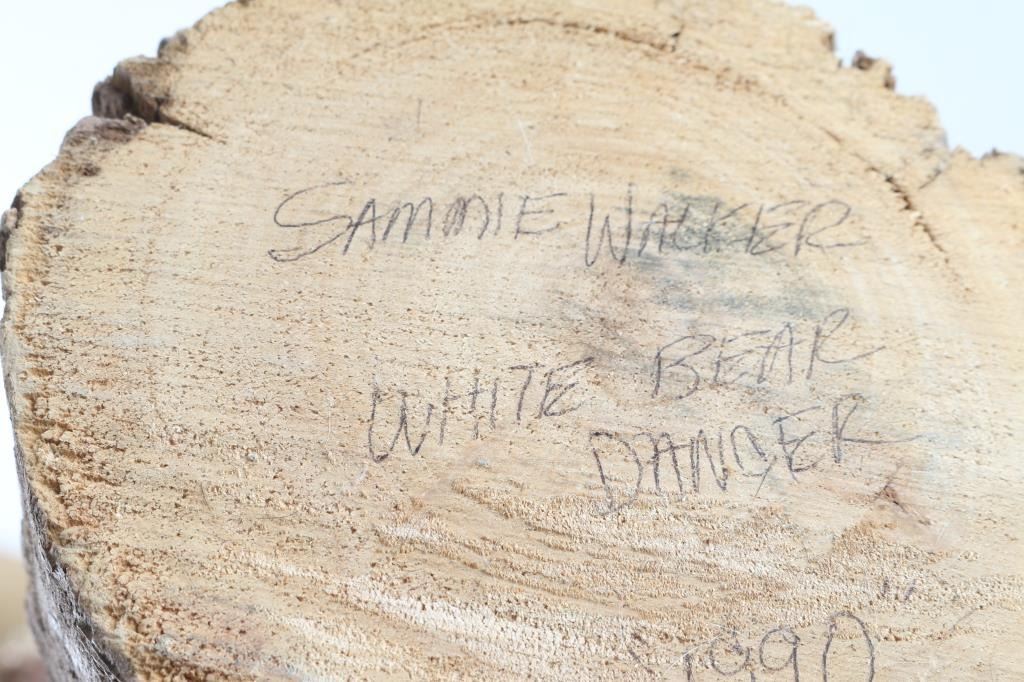 SAMMIE WALKER
WHITE BEAR
DANCER
"1990"